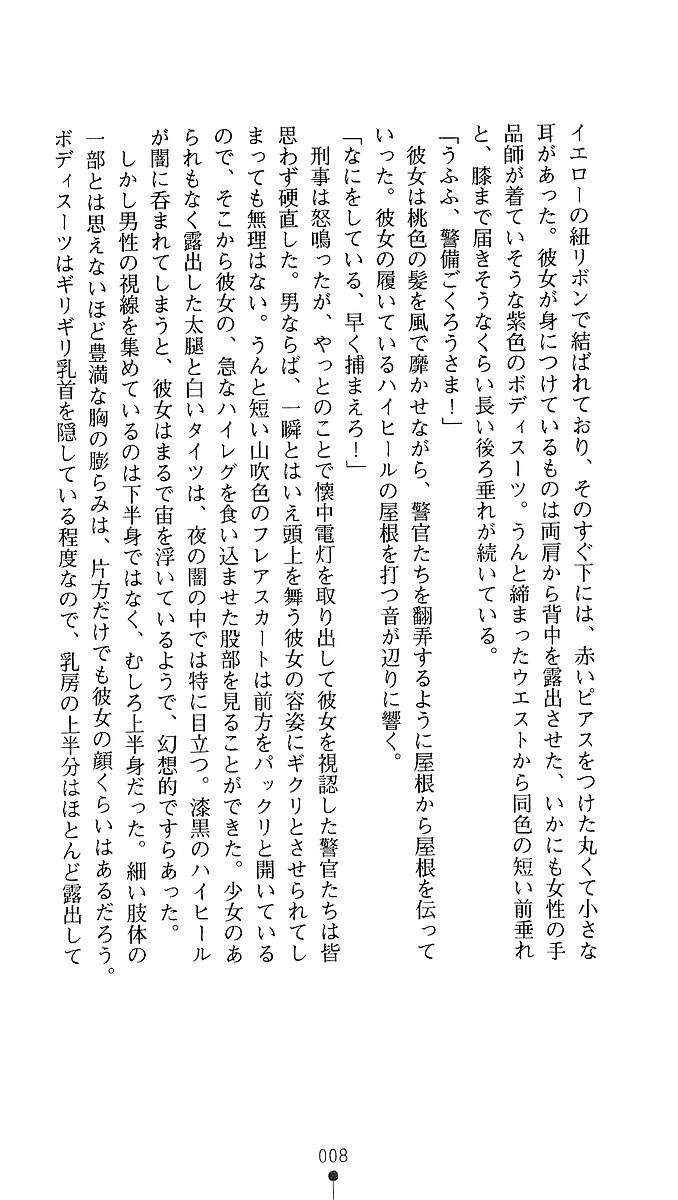 イエローの紐リボンで結ばれており、そのすぐ下には、赤いピアスをつけた丸くて小さな
耳があった。彼女が身につけているものは両肩から背中を露出させた、いかにも女性の手
品師が着ていそうな紫色のボディスーツ。うんと締まったウエストから同色の短い前垂れ
と、膝まで届きそうなくらい長い後ろ垂れが続いている。
「うふふ、警備ごくろうさま！」
彼女は桃色の髪を風で靡かせながら、警官たちを翻弄するように屋根から屋根を伝って
いった。彼女の履いているハイヒールの屋根を打つ音が辺りに響く。
「なにをしている、早く捕まえろ！」
刑事は怒鳴ったが、やっとのことで懐中電灯を取り出して彼女を視認した警官たちは皆
思わず硬直した。男ならば、一瞬とはいえ頭上を舞う彼女の容姿にギクリとさせられてし
まっても無理はない。うんと短い山吹色のフレアスカートは前方をパックリと開いている
ので、そこから彼女の、急なハイレグを食い込ませた股部を見ることができた。少女のあ
られもなく露出した太腿と白いタイツは、夜の闇の中では特に目立つ。漆黒のハイヒール
が闇に呑まれてしまうと、彼女はまるで宙を浮いているようで、幻想的ですらあった。
しかし男性の視線を集めているのは下半身ではなく、むしろ上半身だった。細い肢体の
一部とは思えないほど豊満な胸の膨らみは、片方だけでも彼女の顔くらいはあるだろう。
ボディスーツはギリギリ乳首を隠している程度なので、乳房の上半分はほとんど露出して
008